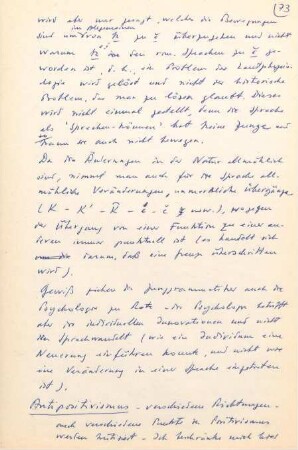 73
wird aber nur gesagt, welche die Bewegungen
im Allgemeinen
sind um von k zu č überzugehen und nicht
warum k in den rom. Sprachen zu č ge-
worden ist, d.h., ein Problem der Lautphysio-
logie wird gelöst und nicht das historische
Problem, das man zu lösen glaubt. Dieses
wird nicht einmal gestellt, denn die Sprache
als 'Sprechen-können' hat keine Zunge und
kann sie auch nicht bewegen.
Da die Änderungen in der Natur allmählich
sind, nimmt man auch für die Sprache all-
mähliche Veränderungen, unmerkliche Übergänge
(K - K' - usw.), wogegen
der Übergang von einer Funktion zu einer an-
deren immer punktuell ist (es handelt sich
darum, daß eine Grenze überschritten
wird).
Gewiß ziehen die Junggrammatiker auch die
Psychologie zu Rate - die Psychologie betrifft
aber die individuellen Innovationen und nicht
den Sprachwandel (wie ein Individuum eine
Neuerung einführen konnte, und nicht wie
eine Veränderung in einer Sprache eingetreten
ist).
Antipositivismus - verschiedene Richtungen -
auch verschiedene Punkte des Positivismus
werden kritisiert - Ich beschränke mich hier